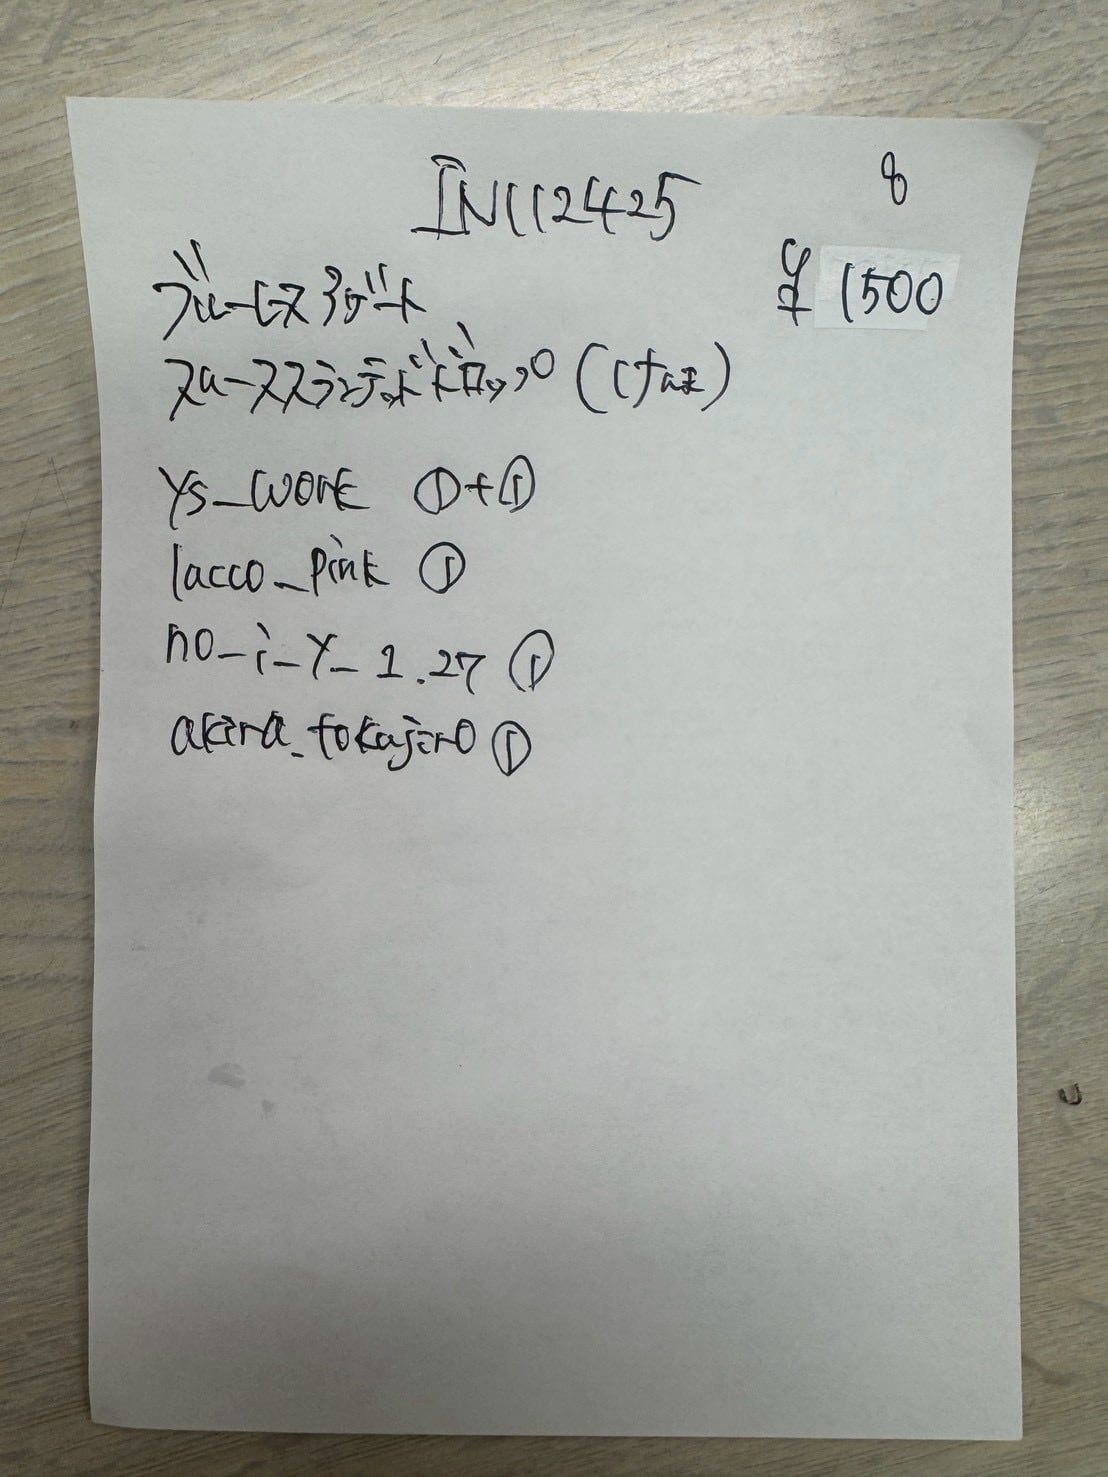 IN112425
8
ブルーレースアゲート
¥1500
スムーススランテッドドロップ(1つ穴)
ys_work ①+①
lacco_pink ①
no_i_y_1.27 ①
akira_tokajiro ①